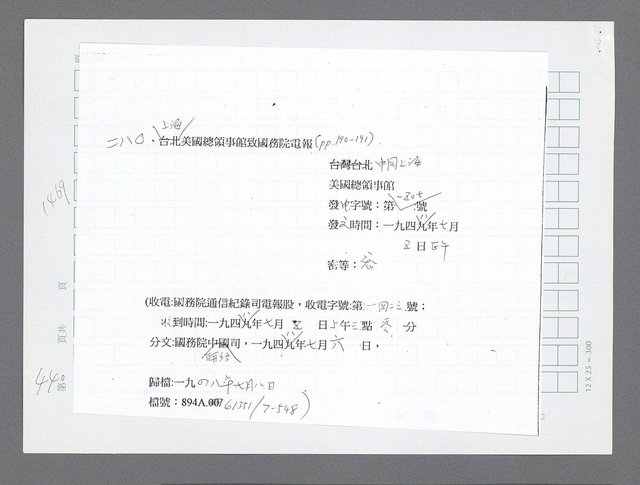 上海
二八〇、台北美國總領事館致國務院電報(pp.190-191).
台灣台北 中国上海
美國總領事館
發文字號：第 號
發文時間：一九四九年七月
五日 下午
密等：密
(收電:國務院通信紀錄司電報股，收電字號:第 號；
收到時間:一九四九年七月 五 日上午三點 零 分
分文:國務院中國司，一九四九年七月六 日，
歸檔:一九四八年七月八日
檔號：894A.007 61351/7-548)
1469
頁
頁共
440
第
12 X 25 = 300